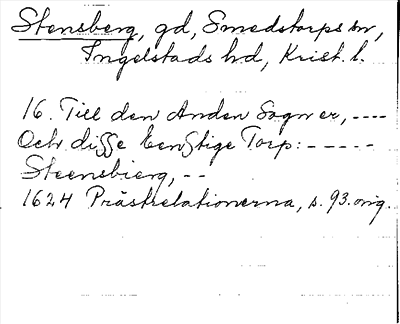 Stensberg, gd, Smedstorps sn,
Ingelstads hd, Krist. l.
16. Till den Anden Sogn er, ----
Och disse Eenstige Torp: -----
Steensbierg, --
1624 Prästrelationerna, s. 93. orig.